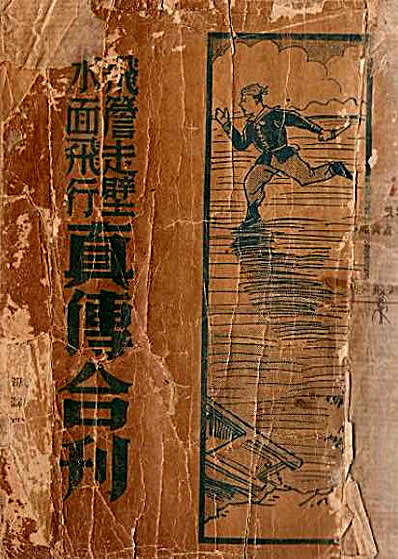 飛簷走壁
水面飛行
真傳合刊